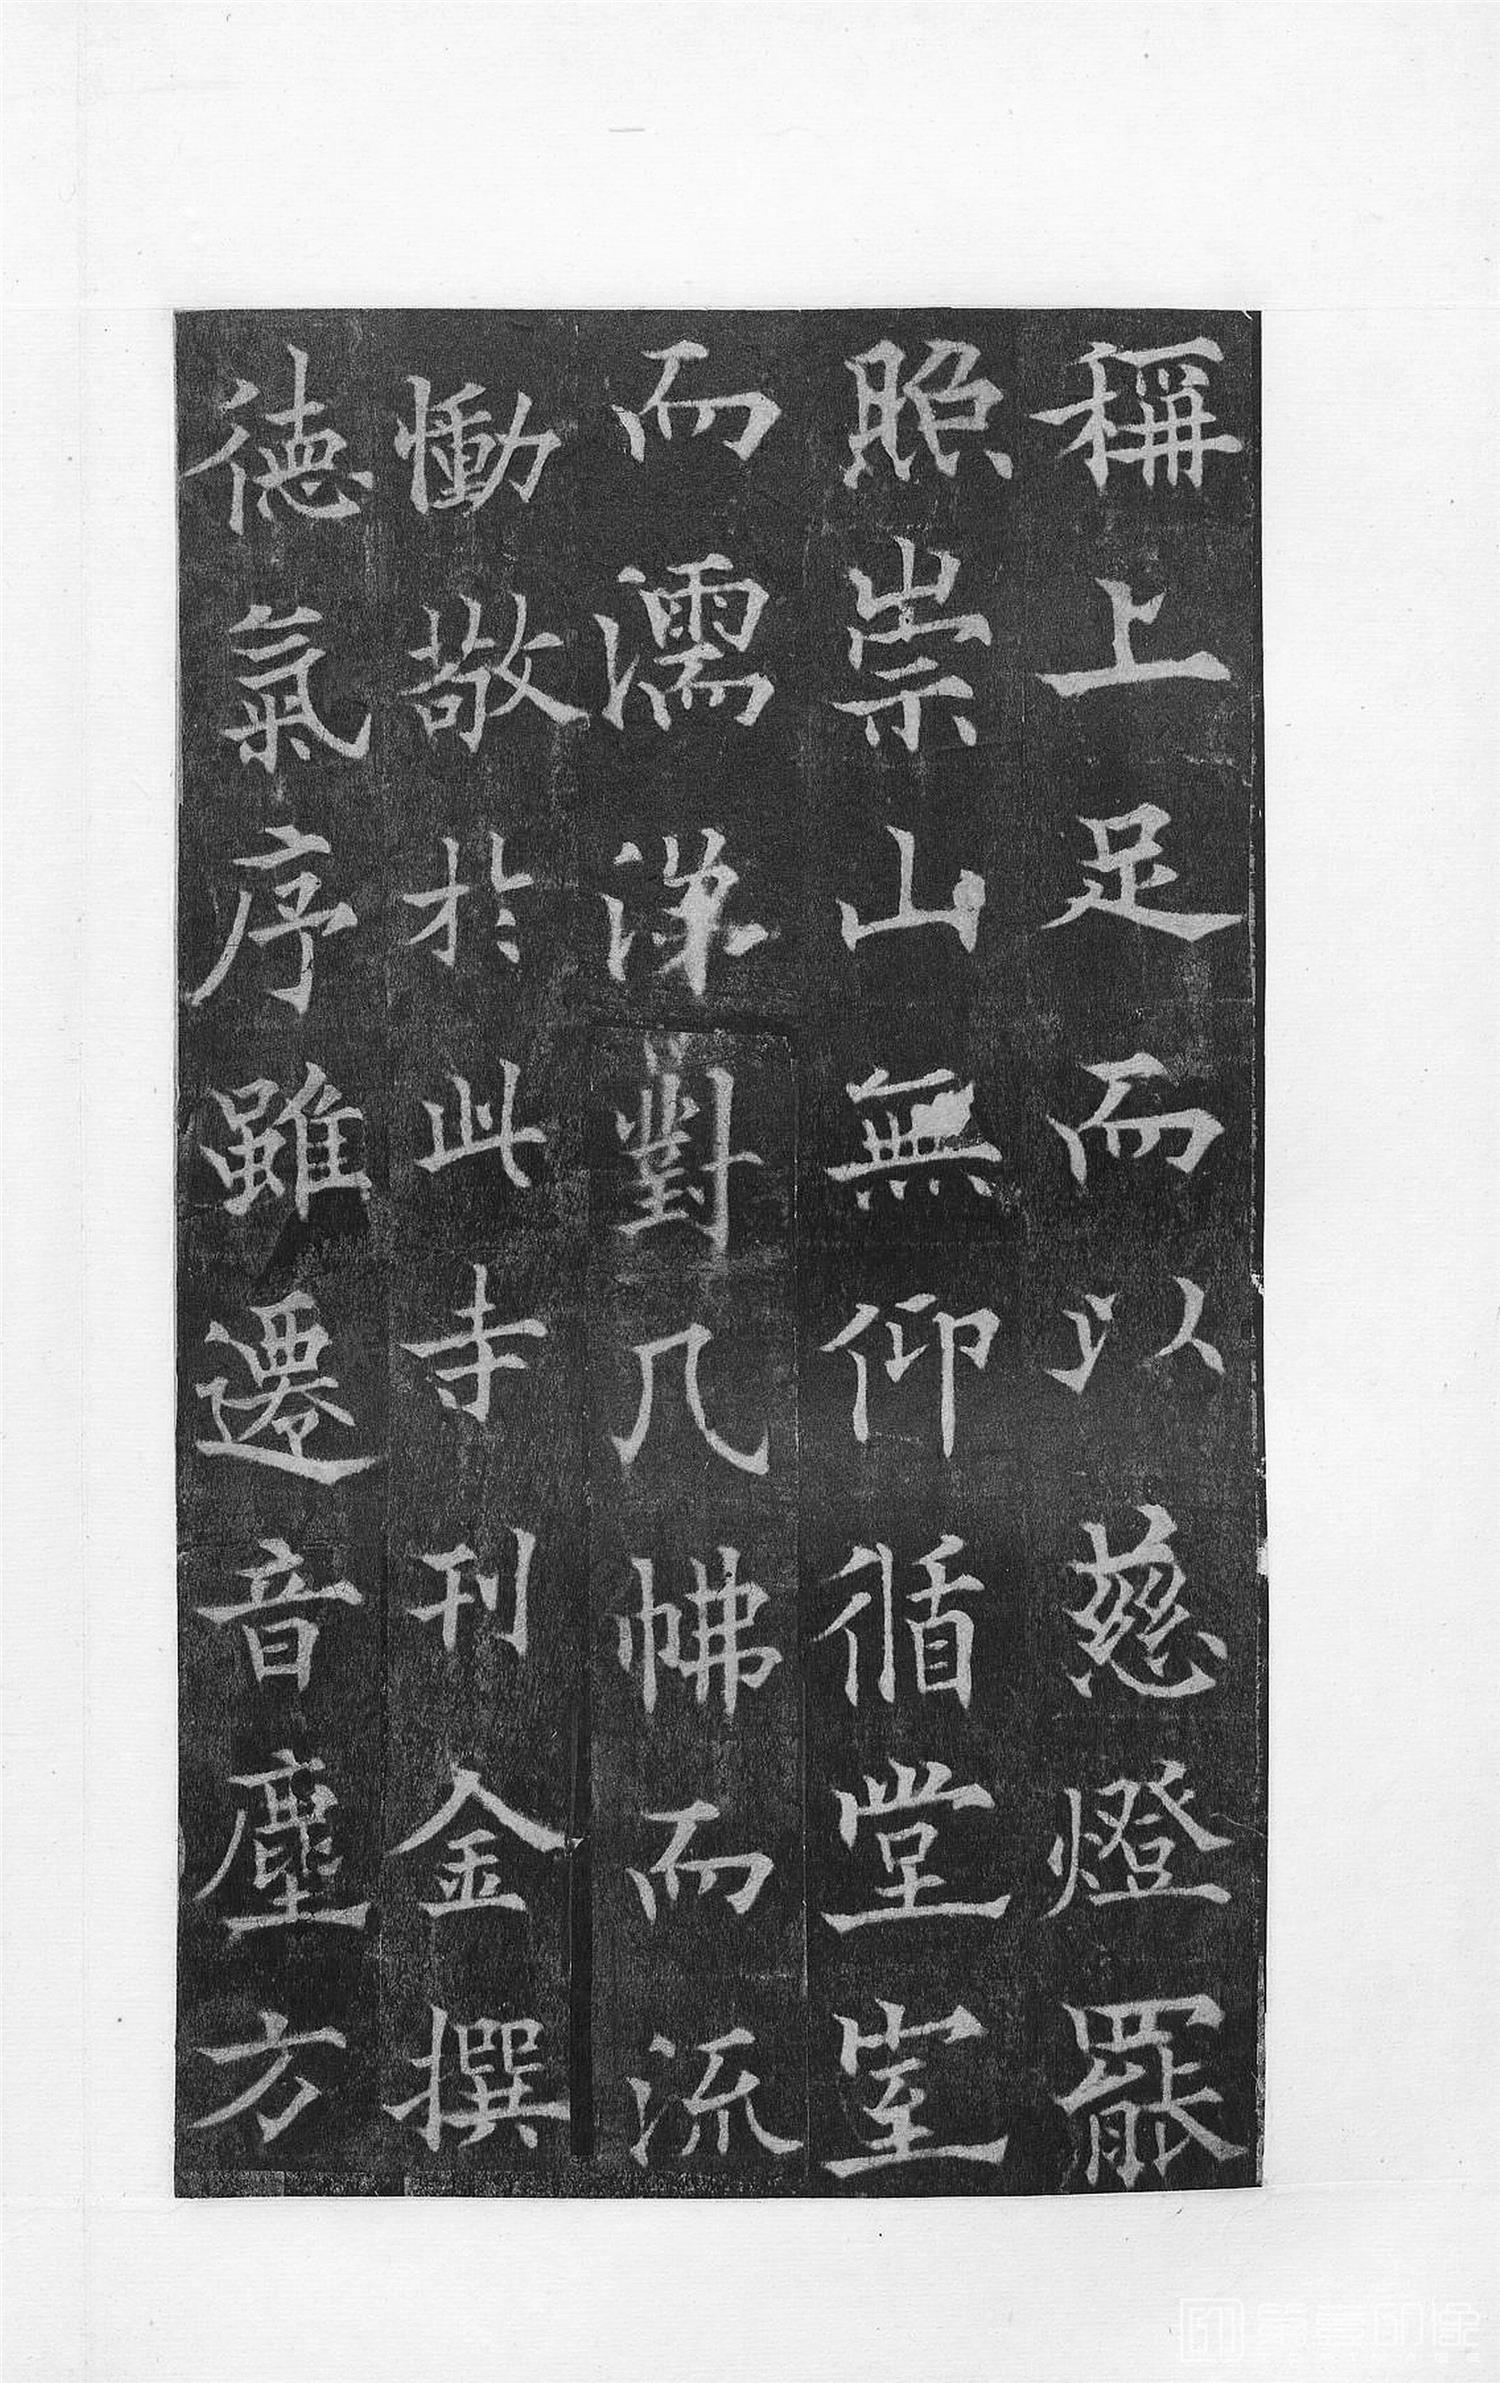 稱上足而以慈燈罷
照崇山無仰循堂室
而濡涕對几而流
慟敬於此寺刊金撰
徳氣序雖遷音塵方